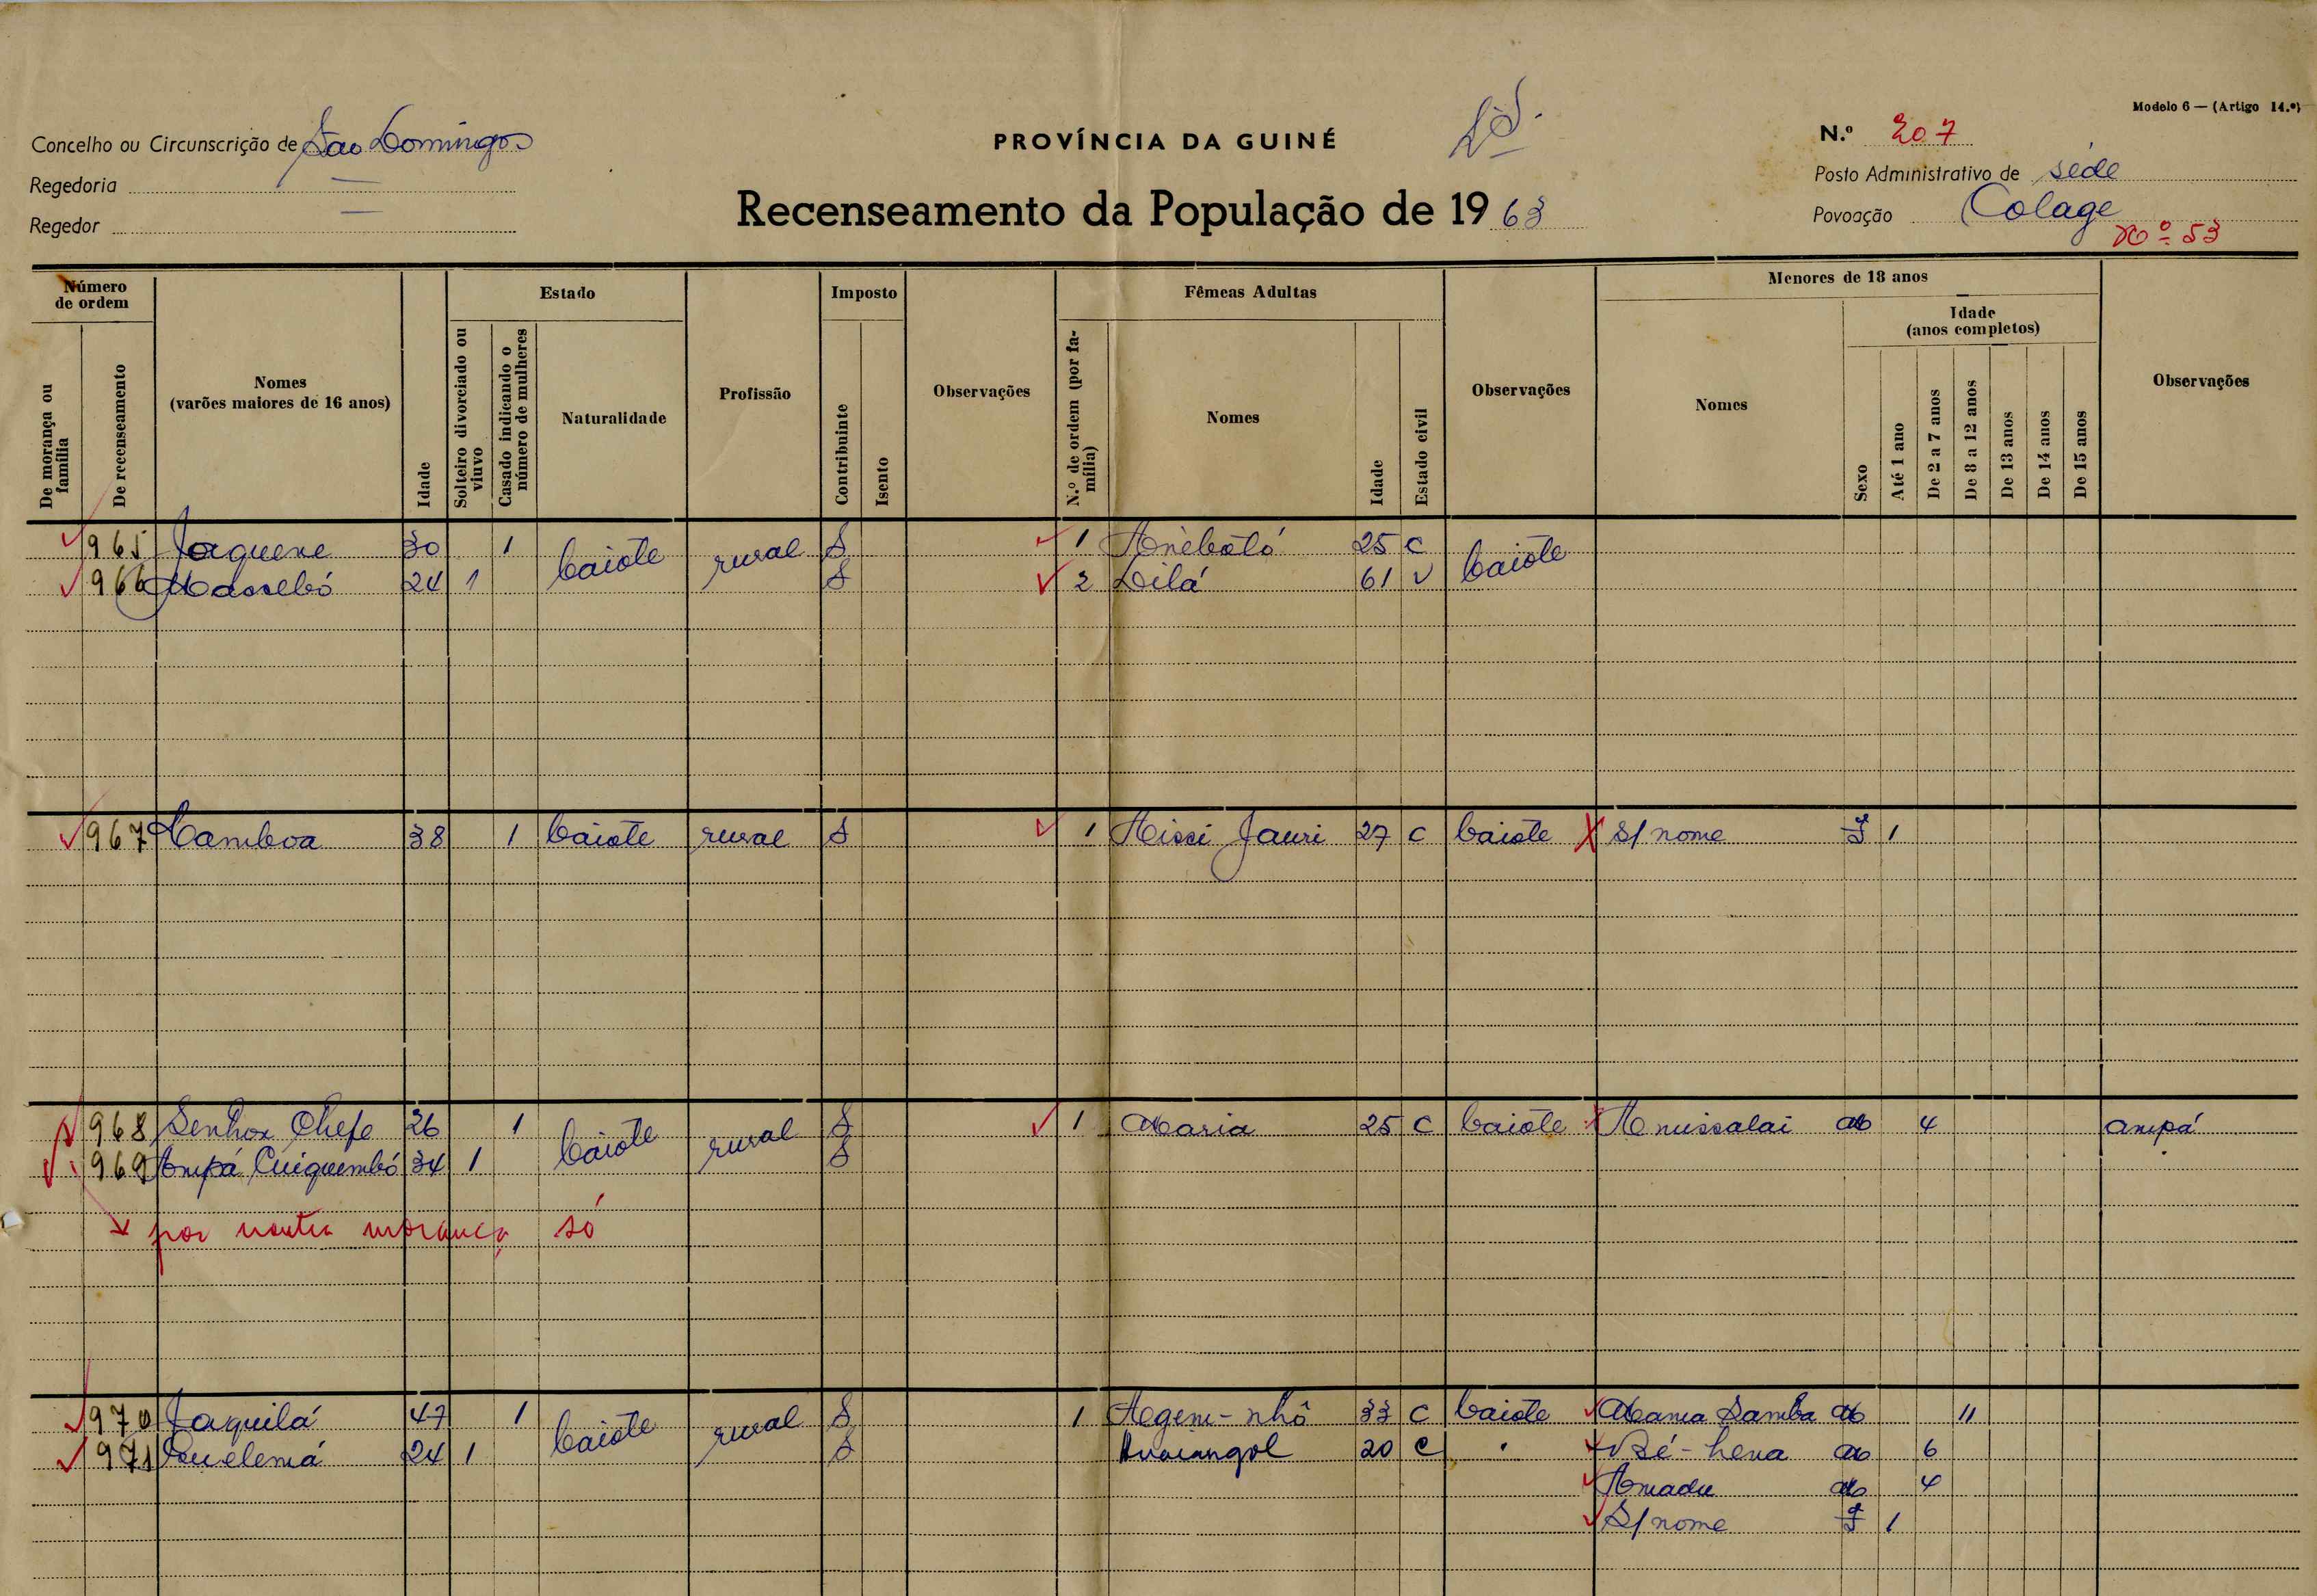 Modelo 6 — (Artigo 14.º)
Concelho ou Circunscrição de São Domingos
PROVÍNCIA DA GUINÉ
N.º 207
Regedoria —
Posto Administrativo de séde
Regedor —
Recenseamento da População de 1963
Povoação Colage
Nº 53
Número de ordem
De morança ou família
De recenseamento
Nomes
(varões maiores de 16 anos)
Idade
Estado
Solteiro divorciado ou viuvo
Casado indicando o número de mulheres
Naturalidade
Profissão
Imposto
Contribuinte
Isento
Observações
Fêmeas Adultas
N.º de ordem (por família)
Nomes
Idade
Estado civil
Observações
Menores de 18 anos
Nomes
Sexo
Idade
(anos completos)
Até 1 ano
De 2 a 7 anos
De 8 a 12 anos
De 13 anos
De 14 anos
De 15 anos
Observações
965 Jaquene 30 1 baiote rural S 1 25 C baiote
966 24 1 S 2 Dilá 61 V
967 Camboa 38 1 baiote rural S 1 Jauri 27 C baiote S/ nome F 1
968 Senhor Chefe 26 1 baiote rural S 1 Maria 25 C baiote Amissalai M 4 ampá
969 Ampá Cuiquembó 34 1 S
por noutra morança só
970 Jaquilá 47 1 baiote rural S 1 33 C baiote Mama Samba M 11
971 24 1 S 20 C M 6
Amadu M 4
S/ nome F 1